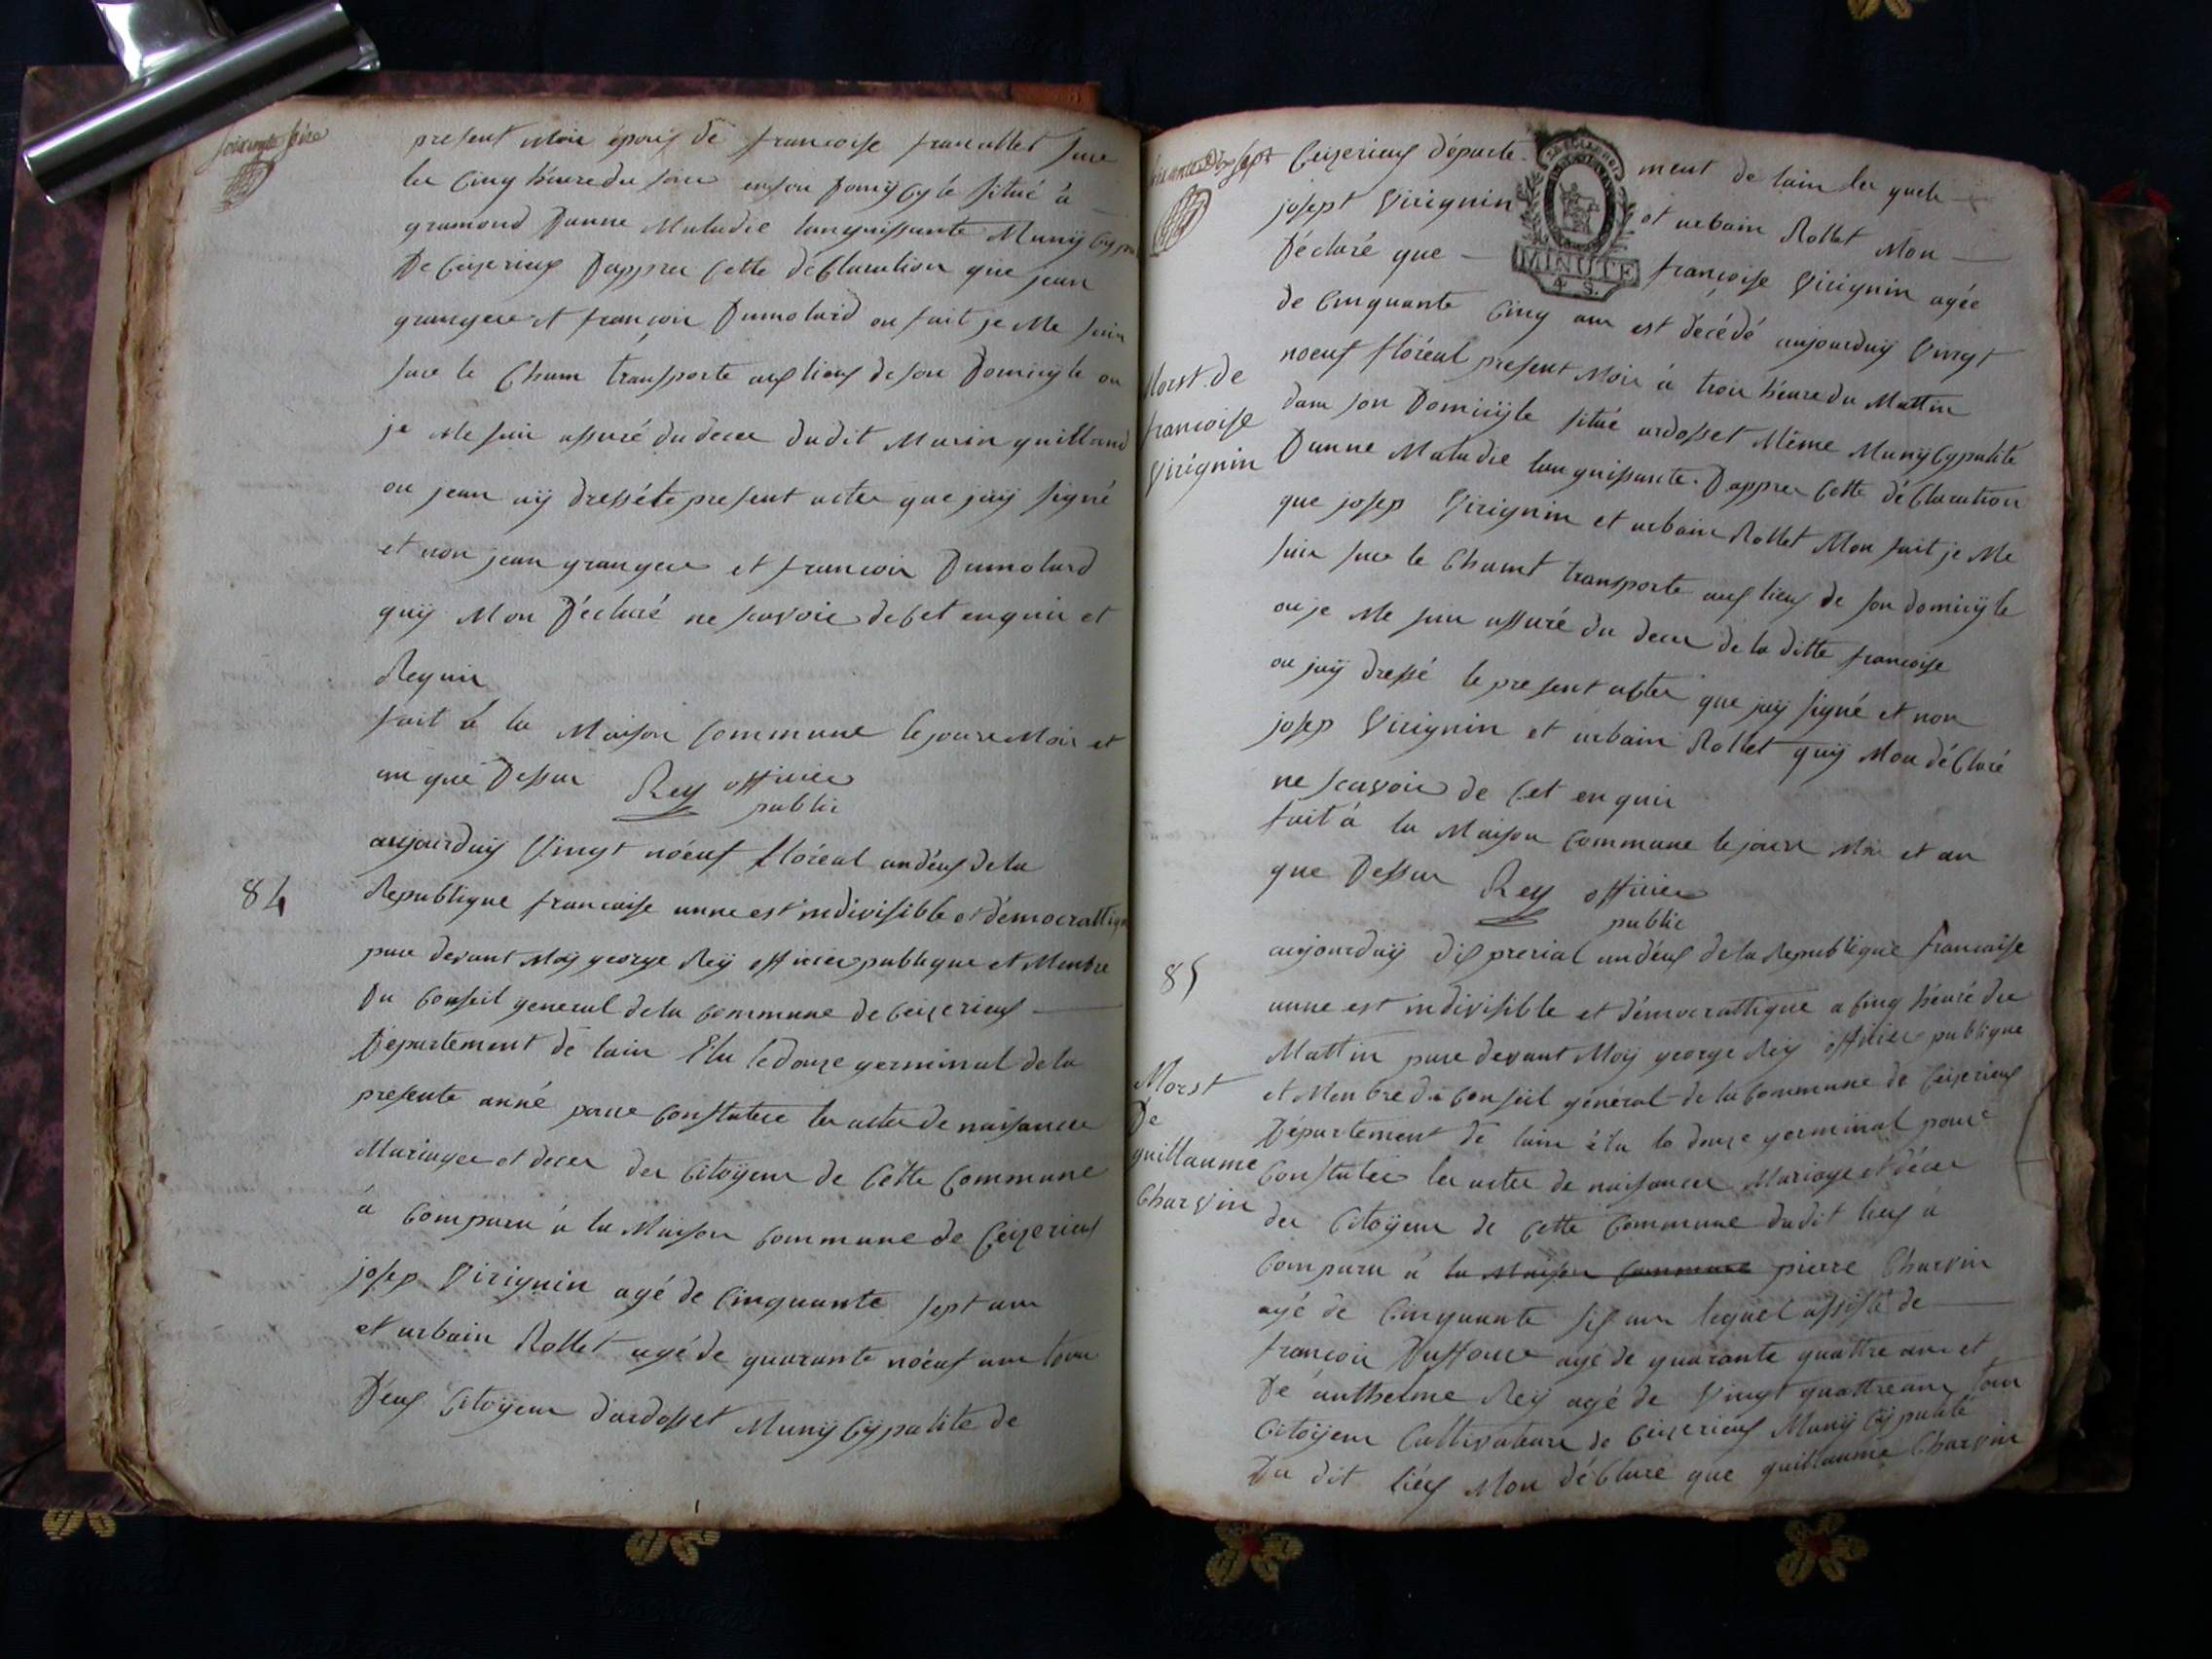 soixante seize
present Mois épouis de francoise francallet sure
les Cinq héure du soire ensou Domiçyle situé à
gramond Dunne Maladie languissante Munÿ Cypa
De Ceizerieux Dapprer Cette déClaration que jean
grangere et francoir Dumolard on fait je Me suis
sure le Cham transporte aux lieux de son Domicyle ou
je Me suis assuré du decer dudit Marin guilland
ou jean aÿ dresséte present actes que jaÿ signé
et non jean grangere et francoir Dumolard
quÿ Mon Déclaré ne scavoir de Cet enquir et
Requir
fait à la Maison Commune le joure Mois et
an que Dessus Rey officier
public
84
aujourduÿ Vingt nöeuf floréal an déux de la
Republique francaise unne est indivisible et démocrattiq
pare devant Moÿ george Reÿ officier publique et Menbre
Du Conseil general de la Commune de Ceizerieux
Département de lain Elu le douze germinal de la
presente anné poure Constatere les actes de naissances
Mariages et decer des Citoÿens de Cette Commune
à Comparu à la Maison Commune de Ceizerieux
josep Virignin agé de Cinquante sept ans
et urbain Rollet agé de quarante nöeuf ans tous
Deux Citoÿens dardosset Munÿ Cÿpalité de
soixante dix sept
Ceizerieux départe- ment de lain les quels
josept Virignin et urbain Rollet Mon
Déclaré que francoise Virignin agée
MINUTE
4. S.
de Cinquante Cinq ans est décédé aujourduÿ Vingt
noeuf floréal present Mois à trois héure du Mattin
Morst. de
francoise
Virignin
dans son Domiciÿle situé ardosset Même MunÿCypalite
Dunne Maladie languissante. Dapprer Cette déClaration
que josep Virignin et urbain Rollet Mon fait je Me
suis sure le Chamt transporte aux lieux de son domiciÿle
ou je Me suis assuré du decer de la ditte francoise
ou jaÿ dressé le present actes que jaÿ signé et non
josep Virignin et urbain Rollet quÿ Mon déClaré
ne scavoir de Cet enquir
fait à la Maison Commune le joure Mois et an
que Dessus Rey officier
public
85
aujourduÿ dix prerial an déux de la Republique francaise
unne est indivisible et démocrattique a Cinq héure du
Mattin pare devant Moÿ george Reÿ officier publique
et Menbre du Conseil général de la Commune de Ceizerieux
Département de lain élu le douze germinal poure
Morst
De
guillaume
Charvin
Constater les actes de naissances Mariage et décer
des Citoÿens de Cette Commune dudit lieux à
Comparu à la Maison Commune pierre Charvin
agé de Cinquante six ans lequel assisté de
francoir Duffour agé de quarante quattre ans et
De anthelme Reÿ agé de Vingt quattre ans tous
Citoÿens Cultivateure de Ceizerieux Munÿ Cÿpalité
Du dit liéux Mon déClaré que guillaume Charvin